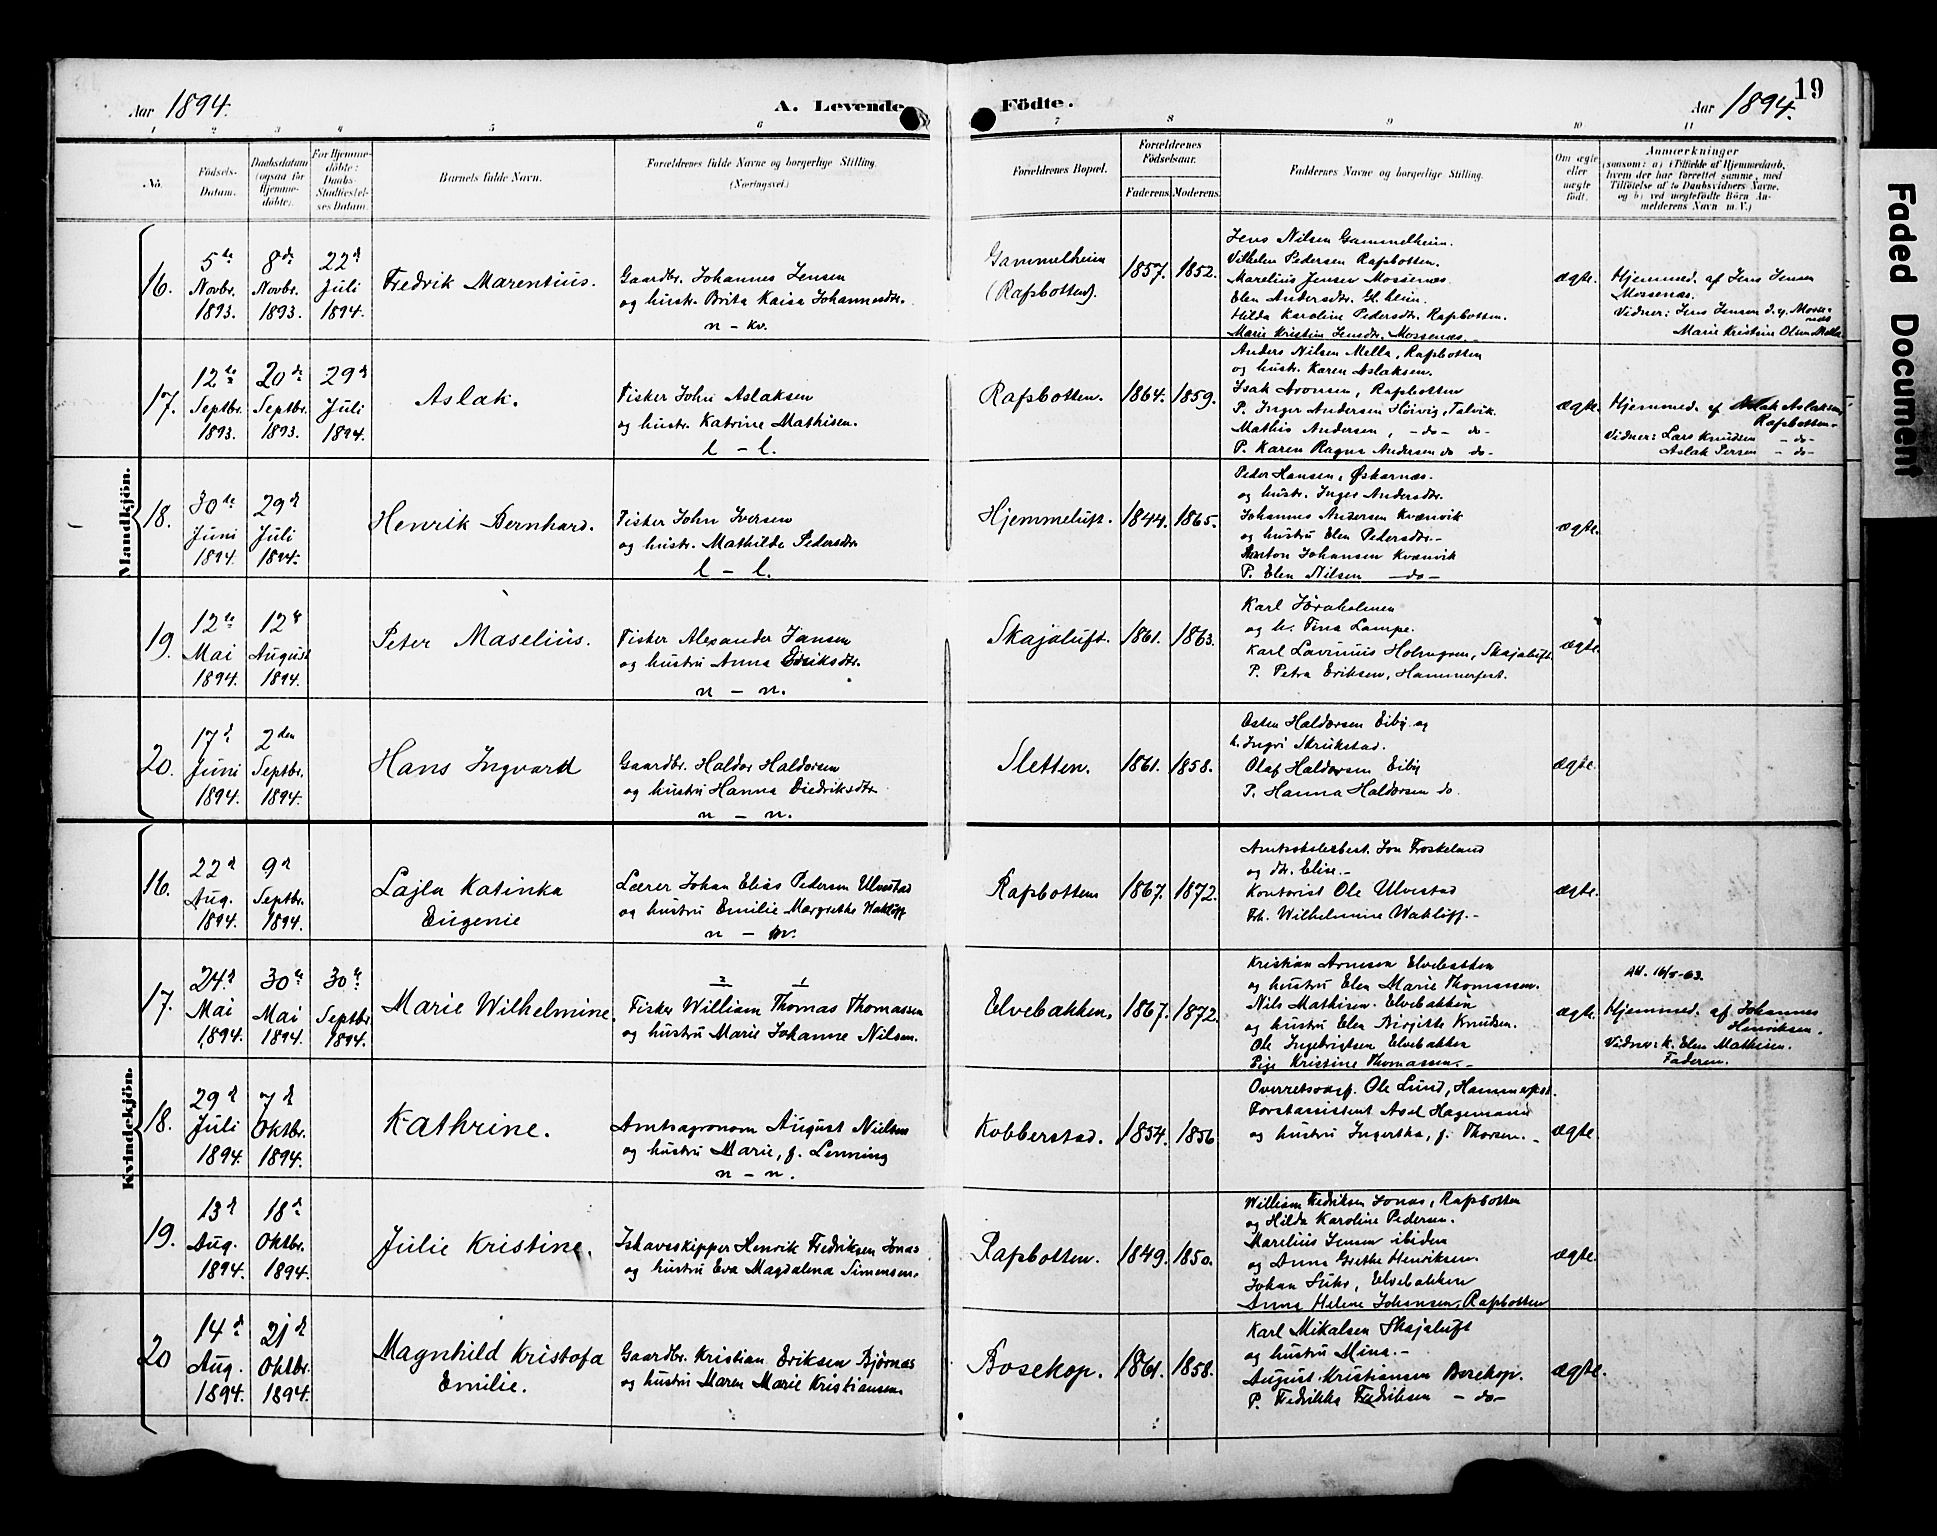 Aar 1894.
A. Levende Födte.
Aar 1894.
19
1 2 3 4 5 6 7 8 9 10 11
No.
Födsels-Datum.
Daabsdatum (ogsaa for Hjemmedöbte).
For Hjemmedöbte: Daabs-Stadfæstelses Datum.
Barnets fulde Navn.
Forældrenes fulde Navne og borgerlige Stilling. (Næringsvei.)
Forældrenes Bopæl.
Forældrenes Födselsaar.
Faderens. Moderens.
Faddernes Navne og borgerlige Stilling.
Om ægte eller uægte födt.
Anmærkninger
(saasom: a) i Tilfælde af Hjemmedaab, hvem der har forrettet samme, med Tilföielse af to Daabsvidners Navne, og b) ved uægtefödte Börn Anmelderens Navn m. V.)
Mandkjön.
16.
5te Novbr. 1893.
8de Novbr. 1893.
22d Juli 1894.
Fredrik Marentius.
Gaardbr. Johannes Jensen
og hustr. Brita Kaisa Johannesdtr.
n - kv.
Gammelheim
(Rafsbotten).
1857. 1852.
Jens Nilsen Gammelheim.
Vilhelm Pedersen Rafsbotten.
Marelius Jensen Mossenæs.
Elen Andersdtr. Gl. heim.
Hilda Karoline Pedersdtr. Rafsbotten.
Marie Kristin Jensdtr. Mossenæs.
ægte.
Hjemmed. af Jens Jensen
Mossenæs.
Vidner: Jens Jensen d. y.
Marie Kristine Olsen
17.
12te Septbr. 1893.
20de Septbr. 1893.
29d Juli 1894.
Aslak.
Fisker John Aslaksen
og hustr. Katrine Mathisen.
l - l.
Rafsbotten.
1864. 1859.
Anders Nilsen Mella, Rafsbotten
og hustr. Karen Aslaksen.
Isak Aronsen, Rafsbotten
P. Inger Andersen Höivig, Talvik.
Mathis Andersen, - do - do -
P. Karen Ragna Andersen do do -
ægte.
Hjemmed. af Aslak Aslaksen,
Rafsbotten.
Vidner: Lars Knudsen - do -
Aslak Persen - do -
18.
30te Juni 1894.
29d Juli 1894.
Henrik Bernhard.
Fisker John Iversen
og hustr. Mathilde Pedersdtr.
l - l.
Hjemmeluft.
1844. 1865.
Peder Hansen, Øskarnæs.
og hustr. Inger Andersdtr.
Johannes Andersen Kvænvik
og hustru Elen Pedersdtr.
Anton Johansen Kvænvik
P. Elen Nilsen - do -
ægte.
19.
12te Mai 1894.
12te August 1894.
Peter Maselius.
Fisker Alexander Jansen
og hustru Anna Edriksdtr.
n - n.
Skajaluft.
1861. 1863.
Karl
og h. Tina Lampe.
Karl Lavinius Holmgren, Skajaluft
P. Petra Eriksen, Hammerfest.
ægte.
20.
17d Juni 1894.
2den Septbr. 1894.
Hans Ingvard
Gaardbr. Haldor Haldorsen
og hustru Hanna Diedriksdtr.
n - n.
Sletten.
1861. 1858.
Osten Haldorsen Eiby og
h. Ingri Skrukstad.
Olaf Haldorsen Eiby
P. Hanna Haldorsen do.
ægte.
Kvindekjön.
16.
22d Aug. 1894.
9d Septbr. 1894.
Lajla Katinka
Eugenie
Lærer Johan Elias Pedersen Ulvestad
og hustru Emilie Margrethe Waklöff
n -
Rafsbotten
1867. 1872.
Jon Froskeland
og fr. Elise.-
Kontorist Ole Ulvestad
Frk. Wilhelmine Waklöff.-
ægte.
17.
24d Mai 1894.
30te Mai 1894.
30te Septbr. 1894.
Marie Wilhelmine.
2 1
Fisker William Thomas Thomassen
og hustru Marie Johanne Nilsen.
Elvebakken.
1867. 1872.
Kristian Arnesen Elvebakken
og hustru Elen Marie Thomassen.
Nils Mathisen. Elvebakken
og hustru Elen Birgitte Knudsen.
Ole Ingebrigtsen Elvebakken
Pige Kristine Thomassen.-
ægte.
Att. 16/5-63.
Hjemmed. af Johannes
Henriksen.
Vidner: K. Elen Mathisen.
Faderen.
18.
29d Juli 1894.
7d Oktbr. 1894.
Kathrine.
Amtsagronom August Nielsen
og hustru Marie, f. Lenning
n - n.
Kobberstad.
1854. 1856
Overretssagf. Ole Lund, Hammerfest.
Forstassistent Axel Hagemann
og hustru Ingertha, f. Thorsen.-
ægte.
19.
13d Aug. 1894.
18de Oktbr. 1894.
Julie Kristine.
Ishavsskipper Henrik Fredriksen Jonas
og hustru Eva Magdalena Simensen.
Rafsbotten.
1849. 1850.
William Fredriksen Jonas, Rafsbotten
og Hilda Karoline Pedersen.
Marelius Jensen ibidem
og Anna Grethe Henriksen.
Johan Suhr, Elvebakken
Anna Helene Johansen, Rafsbotten
ægte.
20
14d Aug. 1894.
21d Oktbr. 1894.
Magnhild Kristofa
Emilie.
Gaardbr. Kristian Eriksen Bjørnæs
og hustru Maren Marie Kristiansen.
Bosekop.
1861. 1858.
Karl Mikalsen Skajaluft
og hustru Mina.-
August Kristiansen Bosekop.
P. Fredrikka Fredriksen - do -
ægte.
Faded Document